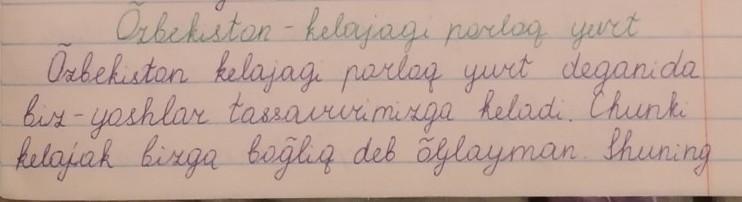 Õzbekiston - kelajagi porloq yurt
Õzbekiston kelajagi porloq yurt deganida
biz-yoshlar tassavvurimizga keladi. Chunki
kelajak bizga bog̃liq deb õylayman. Shuning